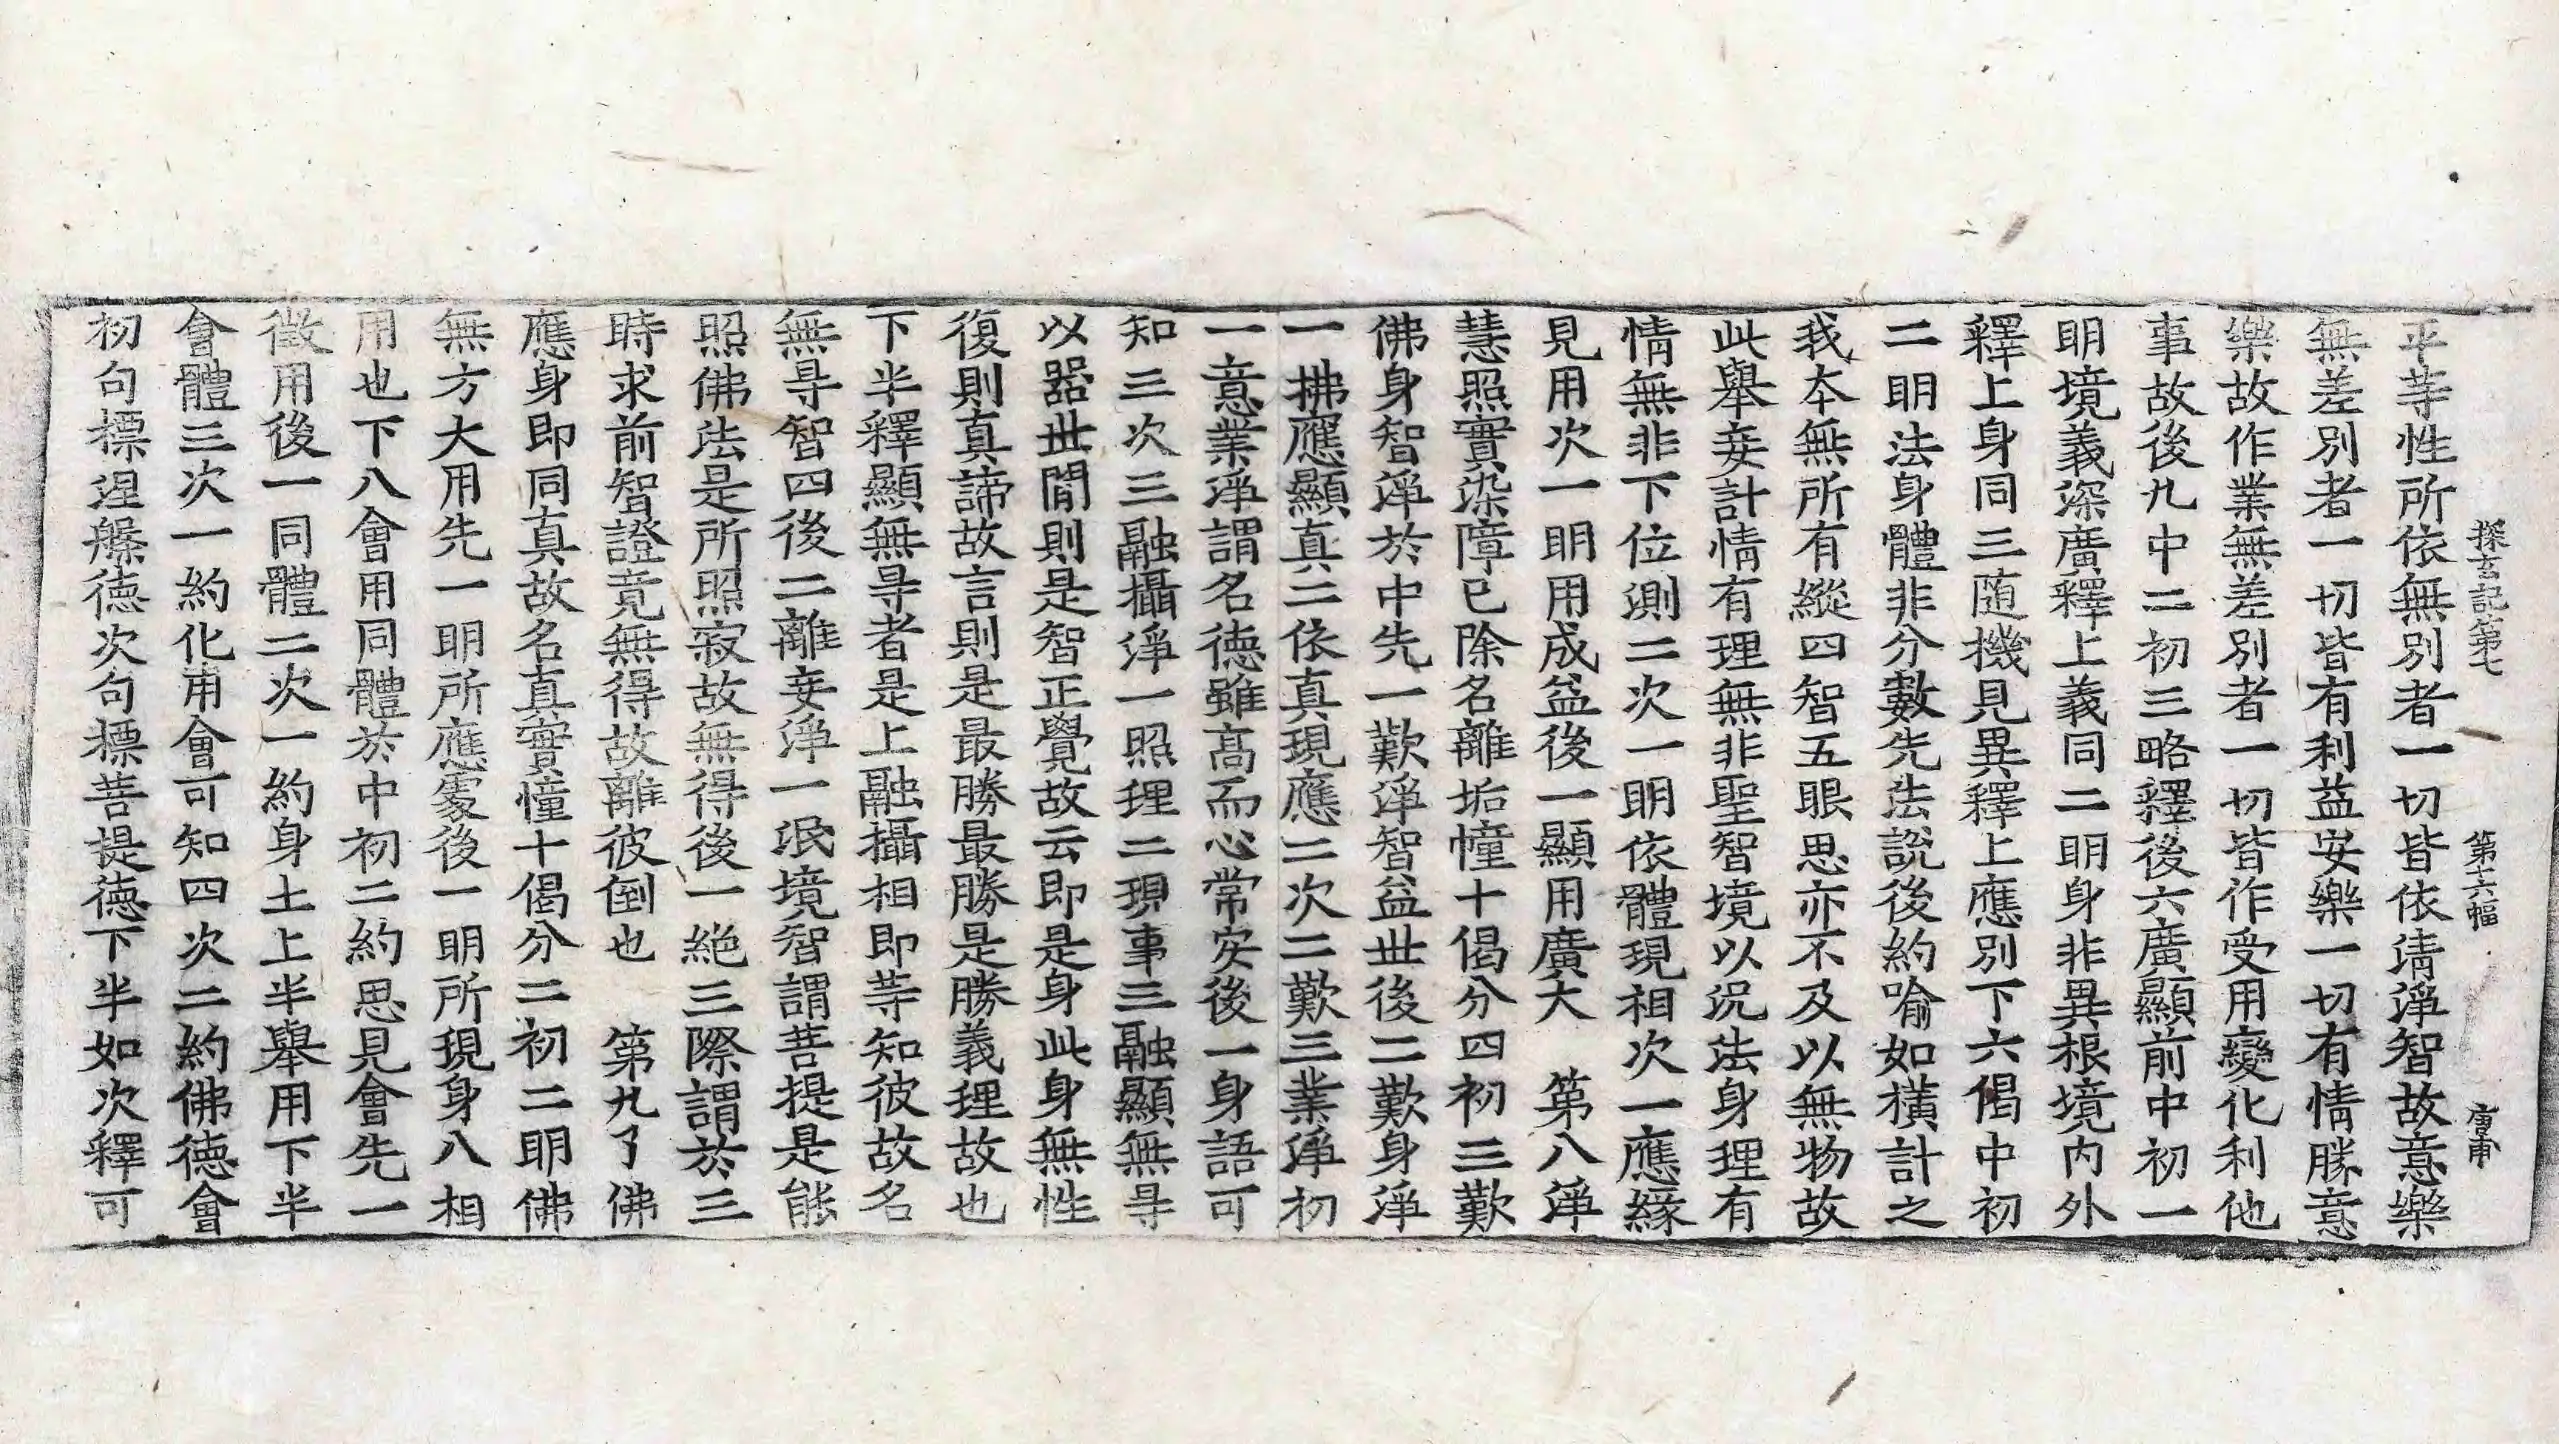 探玄記第七　第十六幅　唐甫
平等性所依無別者一切皆依清淨智故意樂
無差別者一切皆有利益安樂一切有情勝意
樂故作業無差別者一切皆作受用變化利他
事故後九中二初三略釋後六廣顯前中初一
明境義深廣釋上義同二明身非異根境內外
釋上身同三随機見異釋上應別下六偈中初
二明法身體非分數先法說後約喻如橫計之
我本無所有縱四智五眼思亦不及以無物故
此舉妄計情有理無非聖智境以況法身理有
情無非下位測二次一明依體現相次一應緣
見用次一明用成益後一顯用廣大　第八淨
慧照實染障已除名離垢幢十偈分四初三歎
佛身智淨於中先一歎淨智益世後二歎身淨
一拂應顯真二依真現應二次二歎三業淨初
一意業淨謂名德雖高而心常安後一身語可
知三次三融攝淨一照理二現事三融顯無㝵
以器世間則是智正覺故云即是身此身無性
復則真諦故言則是最勝最勝是勝義理故也
下半釋顯無㝵者是上融攝相即等知彼故名
無㝵智四後二離妄淨一泯境智謂菩提是能
照佛法是所照寂故無得後一絕三際謂於三
時求前智證竟無得故離彼倒也　第九了佛
應身即同真故名真實幢十偈分二初二明佛
無方大用先一明所應處後一明所現身八相
用也下八會用同體於中初二約思見會先一
徵用後一同體二次一約身土上半舉用下半
會體三次一約化用會可知四次二約佛德會
初句標涅槃德次句標菩提德下半如次釋可